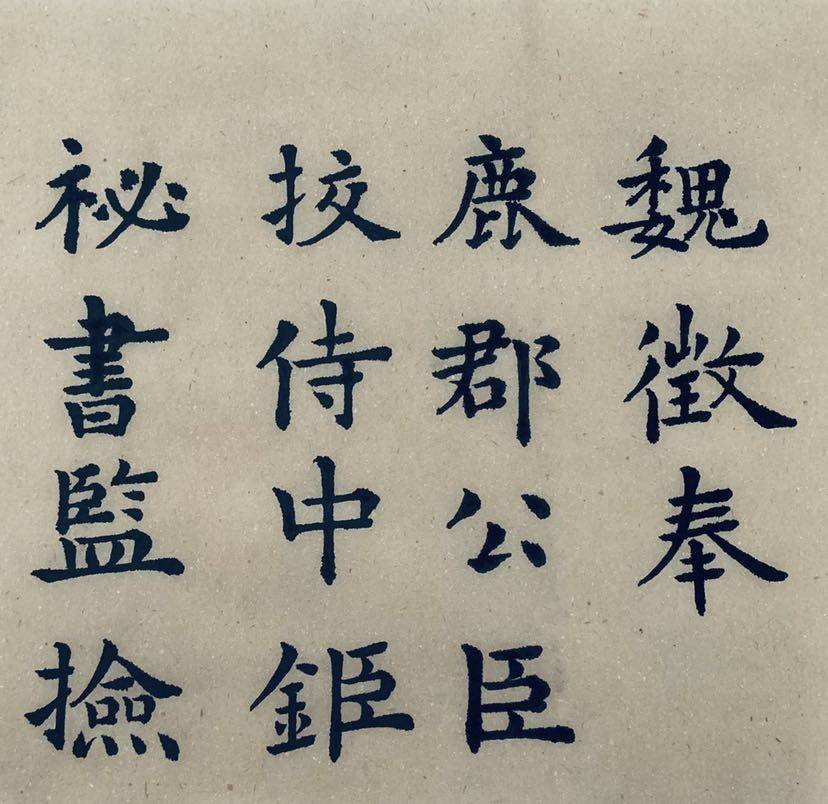 祕書監撿
挍侍中鉅
鹿郡公臣
魏徵奉